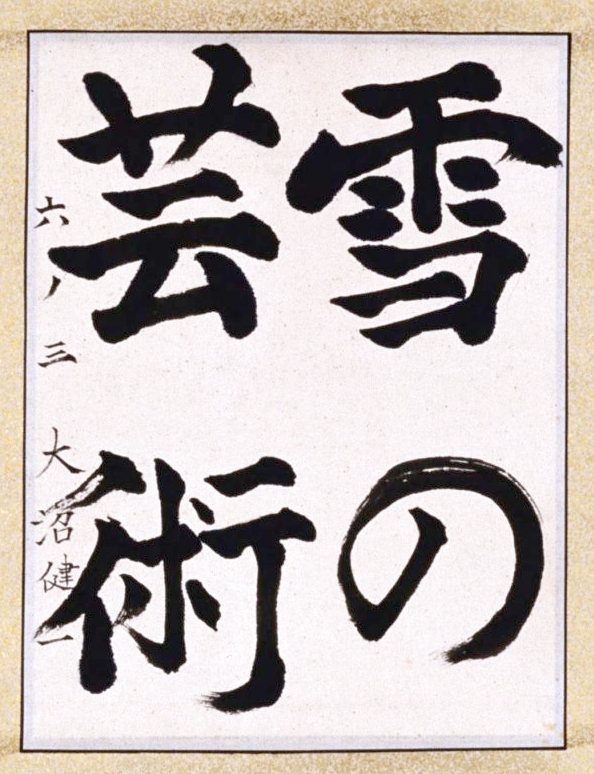 雪の
芸術
六ノ三 大沼健一